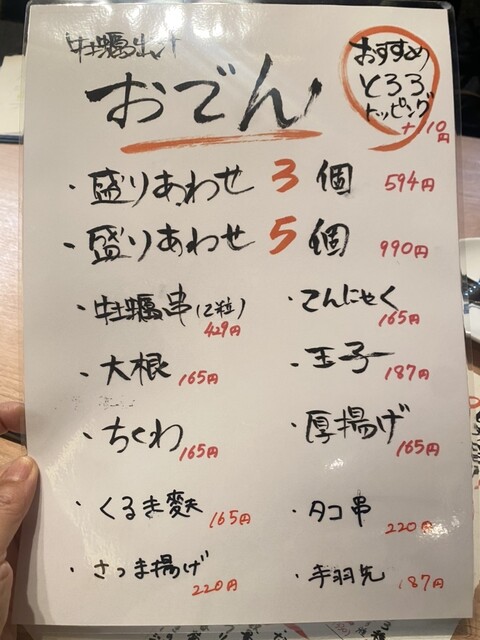 牡蠣出汁
おでん
おすすめ
とろろ
トッピング
+10円
・盛りあわせ 3 個 594円
・盛りあわせ 5 個 990円
・牡蠣串(2粒) 429円
・こんにゃく 165円
・大根 165円
・玉子 187円
・ちくわ 165円
・厚揚げ 165円
・くるま麩 165円
・タコ串 220円
・さつま揚げ 220円
・手羽先 187円